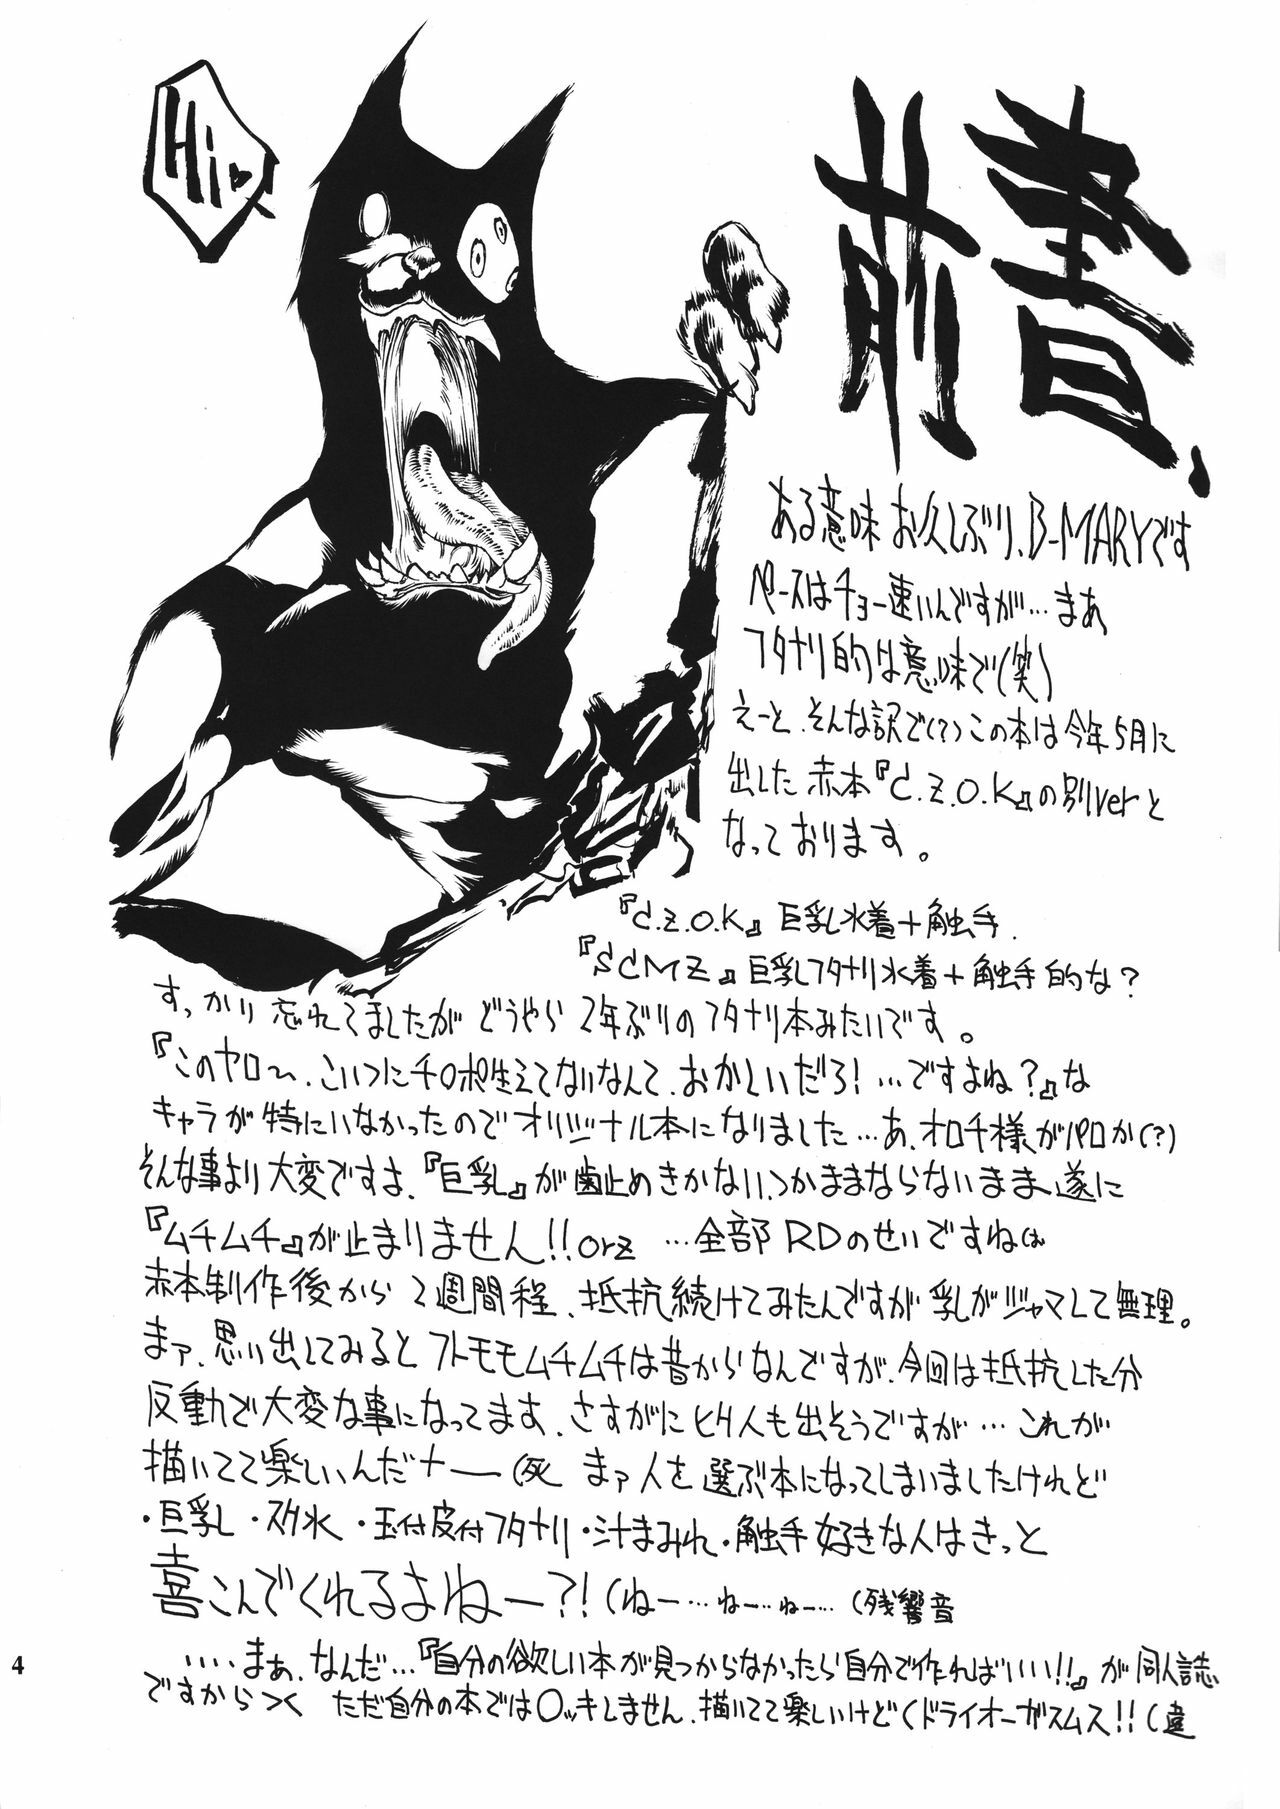 Hi♥
前書、
ある意味お久しぶり、B-MARYです
ペースはチョー速いんですが…まあ
フタナリ的な意味で(笑)
えーと、そんな訳で(?)この本は今年5月に
出した赤本『C.Z.O.K』の別verと
なっております。
『C.Z.O.K』巨乳水着+触手.
『SCMZ』巨乳フタナリ水着+触手的な?
すっかり忘れてましたがどうやら2年ぶりのフタナリ本みたいです。
『このヤロ〜、こいつにチ○ポ生えてないなんて、おかしいだろ!…ですよね?』な
キャラが特にいなかったのでオリジナル本になりました…あ、オロチ様がパロか(?)
そんな事より大変ですよ、『巨乳』が歯止めきかないつかままならないまま遂に
『ムチムチ』が止まりません!!orz …全部RDのせいですねぃ
赤本制作後から2週間程、抵抗続けてみたんですが乳がジャマして無理。
まァ、思い出してみるとフトモモムチムチは昔からなんですが、今回は抵抗した分
反動で大変な事になってます、さすがにヒク人も出そうですが…これが
描いてて楽しいんだナー(死 まァ人を選ぶ本になってしまいましたけれど
・巨乳・スク水・玉付皮付フタナリ・汁まみれ・触手好きな人はきっと
喜こんでくれるよねー?!(ねー…ねー…ねー…(残響音
....まぁ、なんだ…『自分の欲しい本が見つからなかったら自分で作ればいい!!』が同人誌
ですからつく ただ自分の本では○ッキしません、描いてて楽しいけどくドライオーガスムス!!(違
4